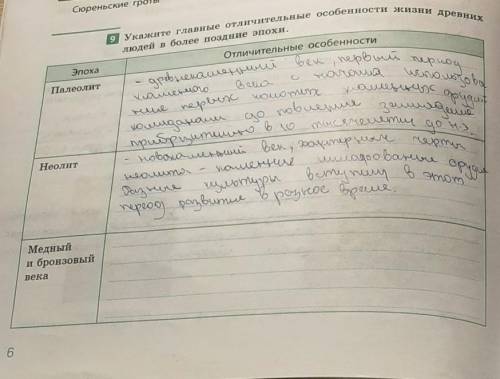 Сюреньские гроты
9 Укажите главные отличительные особенности жизни древних
людей в более поздние эпохи.
Эпоха
Отличительные особенности
Палеолит
- древнекаменный век, первый период
каменного века с начала использова
ния первых каменных орудий
до появления земледелия
приблизительно в 10 тысячелетии до н.э.
Неолит
- новокаменный век, черты
неолита - каменные шлифованные орудия
Разные культуры вступили в этот
период развития в разное время.
Медный
и бронзовый
века
6